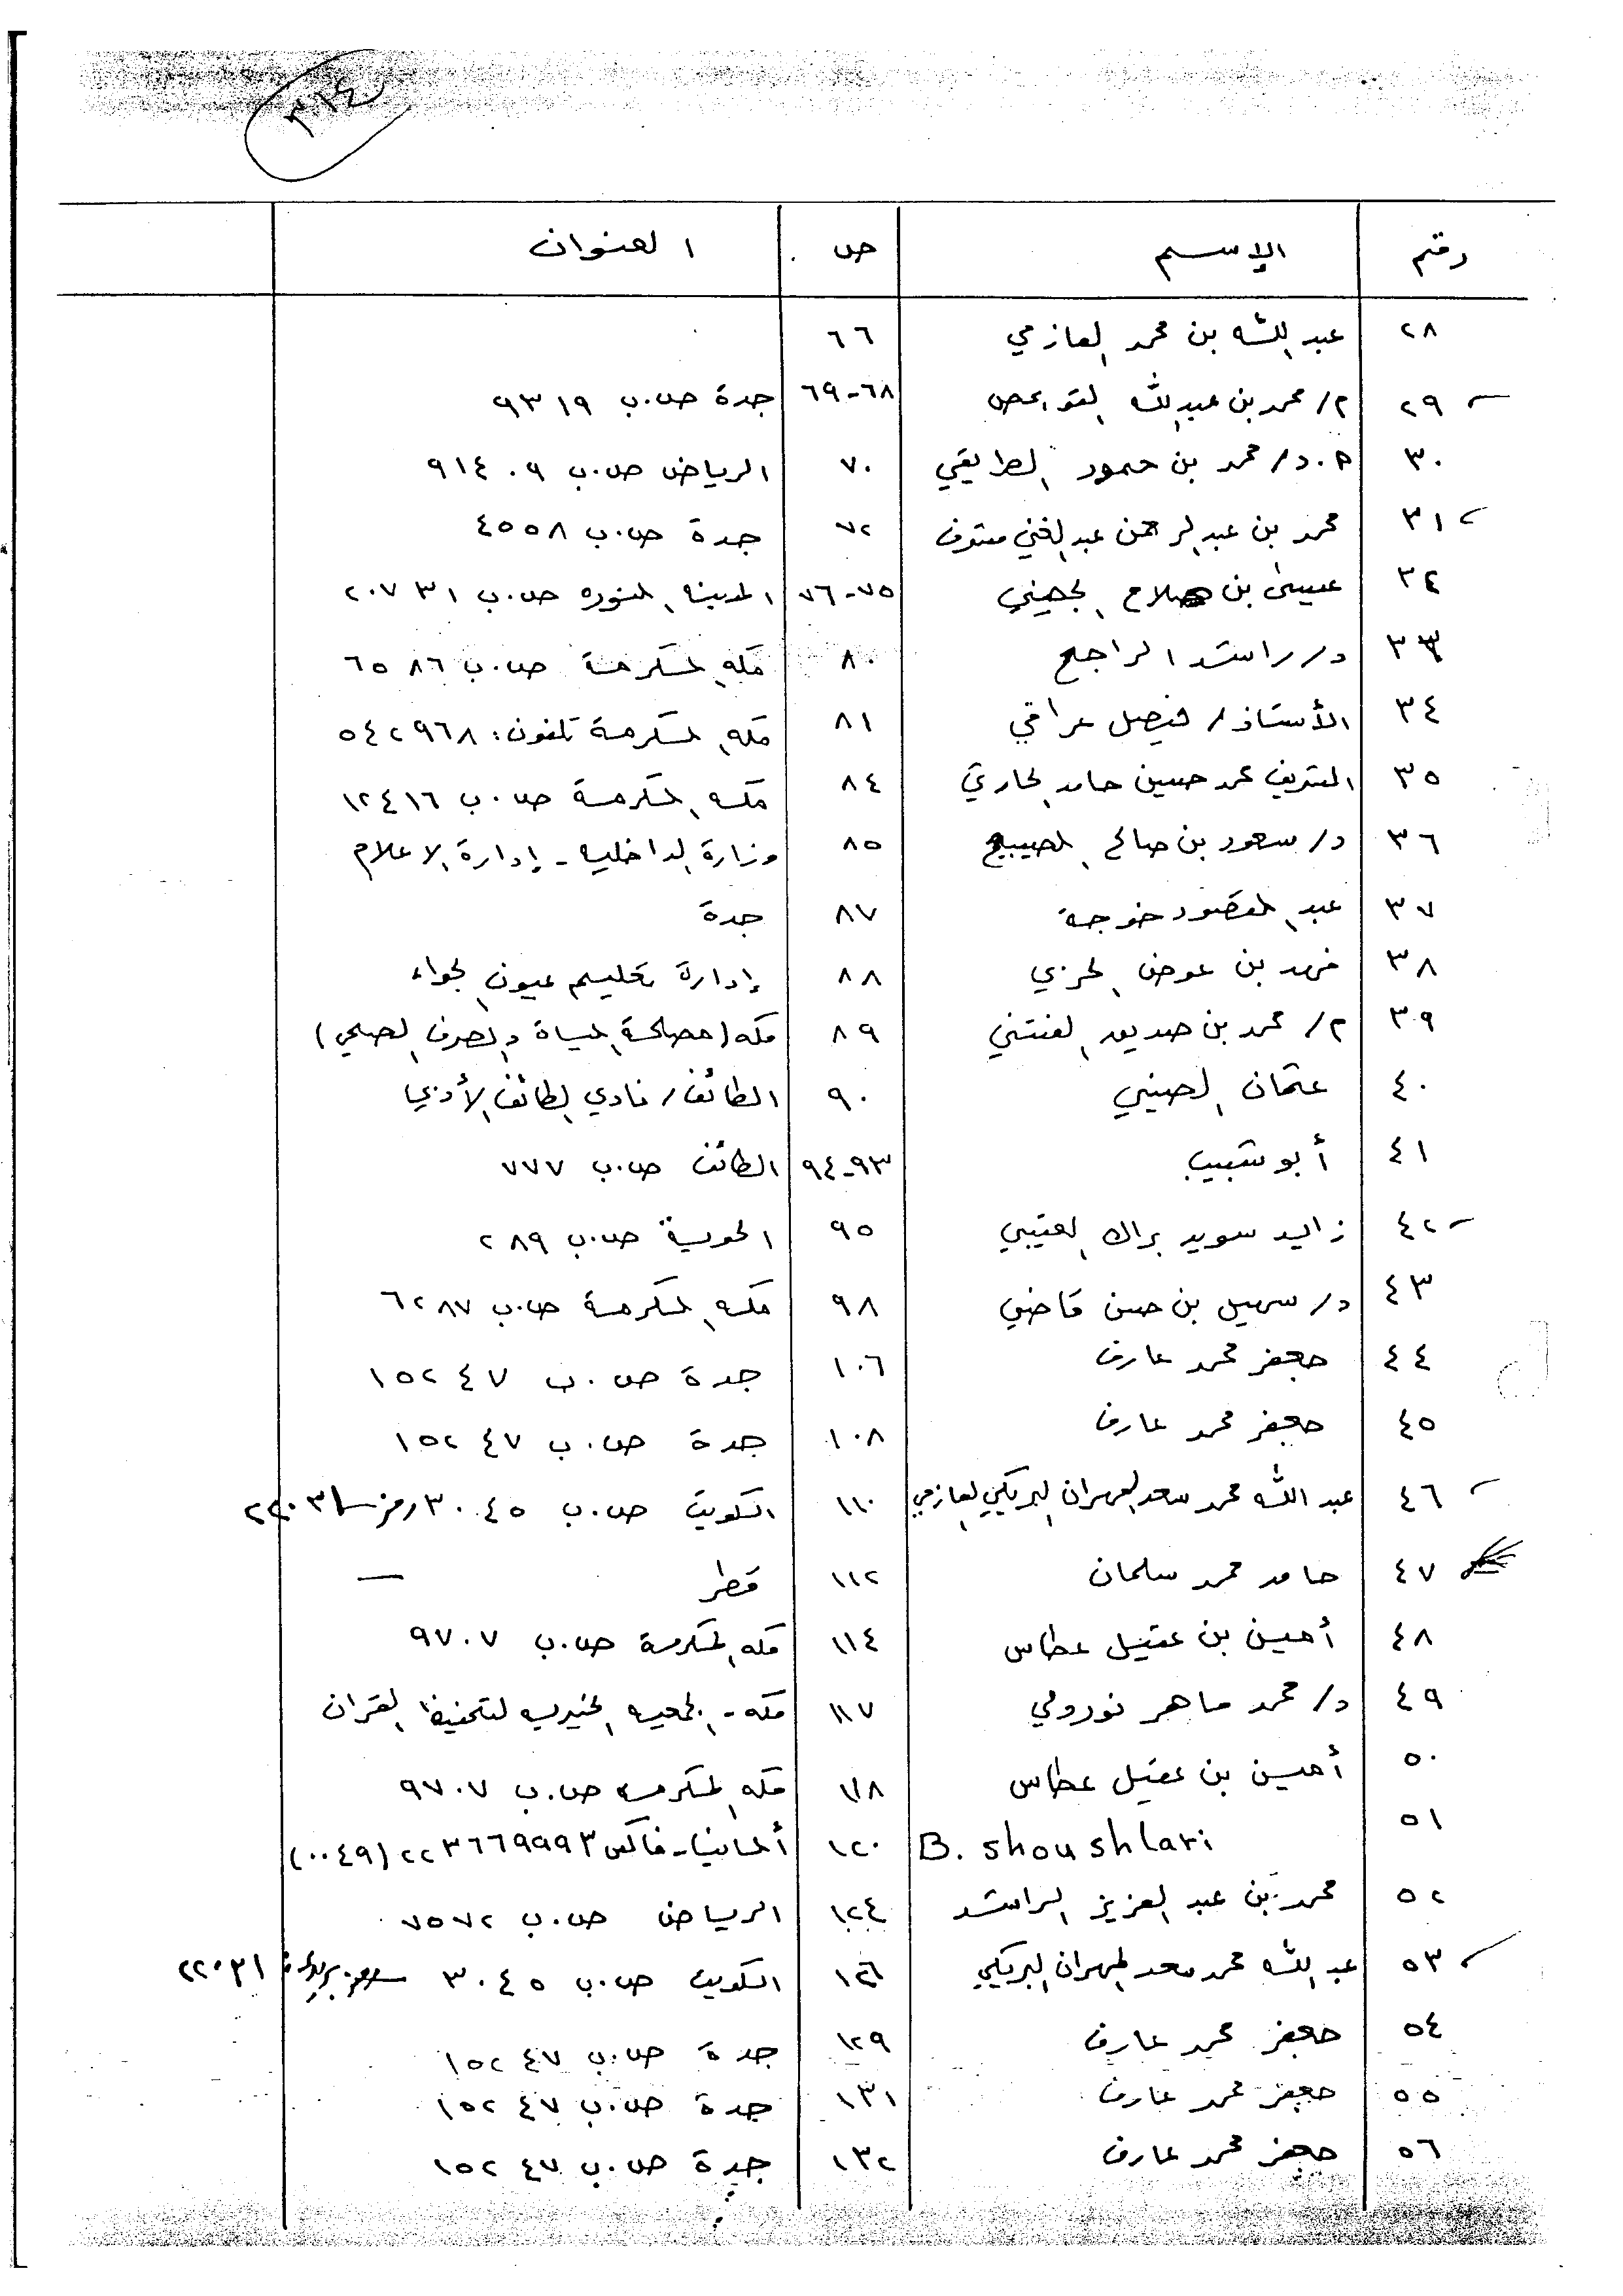 ٣١٤
رقم الإسم ص العنوان
٢٨ عبد الله بن محمد العازمي ٦٦
٢٩ م/ محمد بن عبدالله القويحص ٦٨-٦٩ جدة ص.ب ٩٣١٩
٣٠ أ.د/ محمد بن حمود الطريقي ٧٠ الرياض ص.ب ٩١٤٠٩
٣١ محمد بن عبدالرحمن عبدالغني مشرف ٧٢ جدة ص.ب ٤٥٥٨
٣٢ عيسى بن صلاح الجهني ٧٥-٧٦ المدينه المنوره ص.ب ٢٠٧٣١
٣٣ د/ راشد الراجح ٨٠ مكه المكرمة ص.ب ٦٥٨٦
٣٤ الأستاذ/ فيصل عراقي ٨١ مكه المكرمة تلفون: ٥٤٢٩٦٨
٣٥ الشريف محمد حسين حامد الحارثي ٨٤ مكه المكرمة ص.ب ١٢٤١٦
٣٦ د/ سعود بن صالح المصيبيح ٨٥ وزارة الداخليه - إدارة الاعلام
٣٧ عبد المقصود خوجة ٨٧ جدة
٣٨ فهد بن عوض الحربي ٨٨ إدارة تعليم عيون الجواء
٣٩ م/ محمد بن صديق الفتني ٨٩ مكه (مصلحة المياة والصرف الصحي)
٤٠ عثمان الصيني ٩٠ الطائف/ نادي الطائف الأدبي
٤١ أبو شبيب ٩٣-٩٤ الطائف ص.ب ٧٧٧
٤٢ زايد سويد براك العتيبي ٩٥ الحوية ص.ب ٢٨٩
٤٣ د/ سهيل بن حسن قاضي ٩٨ مكه المكرمة ص.ب ٦٢٨٧
٤٤ جعفر محمد عارف ١٠٦ جدة ص.ب ١٥٢٤٧
٤٥ جعفر محمد عارف ١٠٨ جدة ص.ب ١٥٢٤٧
٤٦ عبد الله محمد سعد المهران البريكي العازمي ١١٠ الكويت ص.ب ٣٠٤٥ رمز ٢٢٠٣١
٤٧ حامد محمد سلمان ١١٢ قطر —
٤٨ أمين بن عقيل عطاس ١١٤ مكه المكرمة ص.ب ٩٧٠٧
٤٩ د/ محمد ماهر نورولي ١١٧ مكه - الجمعيه الخيريه لتحفيظ القران
٥٠ أمين بن عقيل عطاس ١١٨ مكه المكرمه ص.ب ٩٧٠٧
٥١ B. shoushlari ١٢٠ ألمانيا - فاكس ٢٢٣٦٦٩٩٩٣ (٠٠٤٩)
٥٢ محمد بن عبد العزيز الراشد ١٢٤ الرياض ص.ب ٧٥٧٢
٥٣ عبد الله محمد سعد المهران البريكي ١٢٦ الكويت ص.ب ٣٠٤٥ ٢٢٠٣١
٥٤ جعفر محمد عارف ١٢٩ جدة ص.ب ١٥٢٤٧
٥٥ جعفر محمد عارف ١٣١ جدة ص.ب ١٥٢٤٧
٥٦ جعفر محمد عارف ١٣٢ جدة ص.ب ١٥٢٤٧